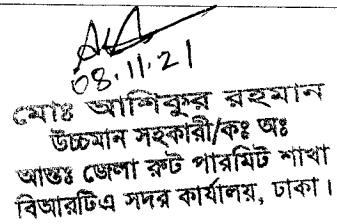 08.11.21
মোঃ আশিকুর রহমান
উচ্চমান সহকারী/কঃ অঃ
আন্তঃ জেলা রুট পারমিট শাখা
বিআরটিএ সদর কার্যালয়, ঢাকা।